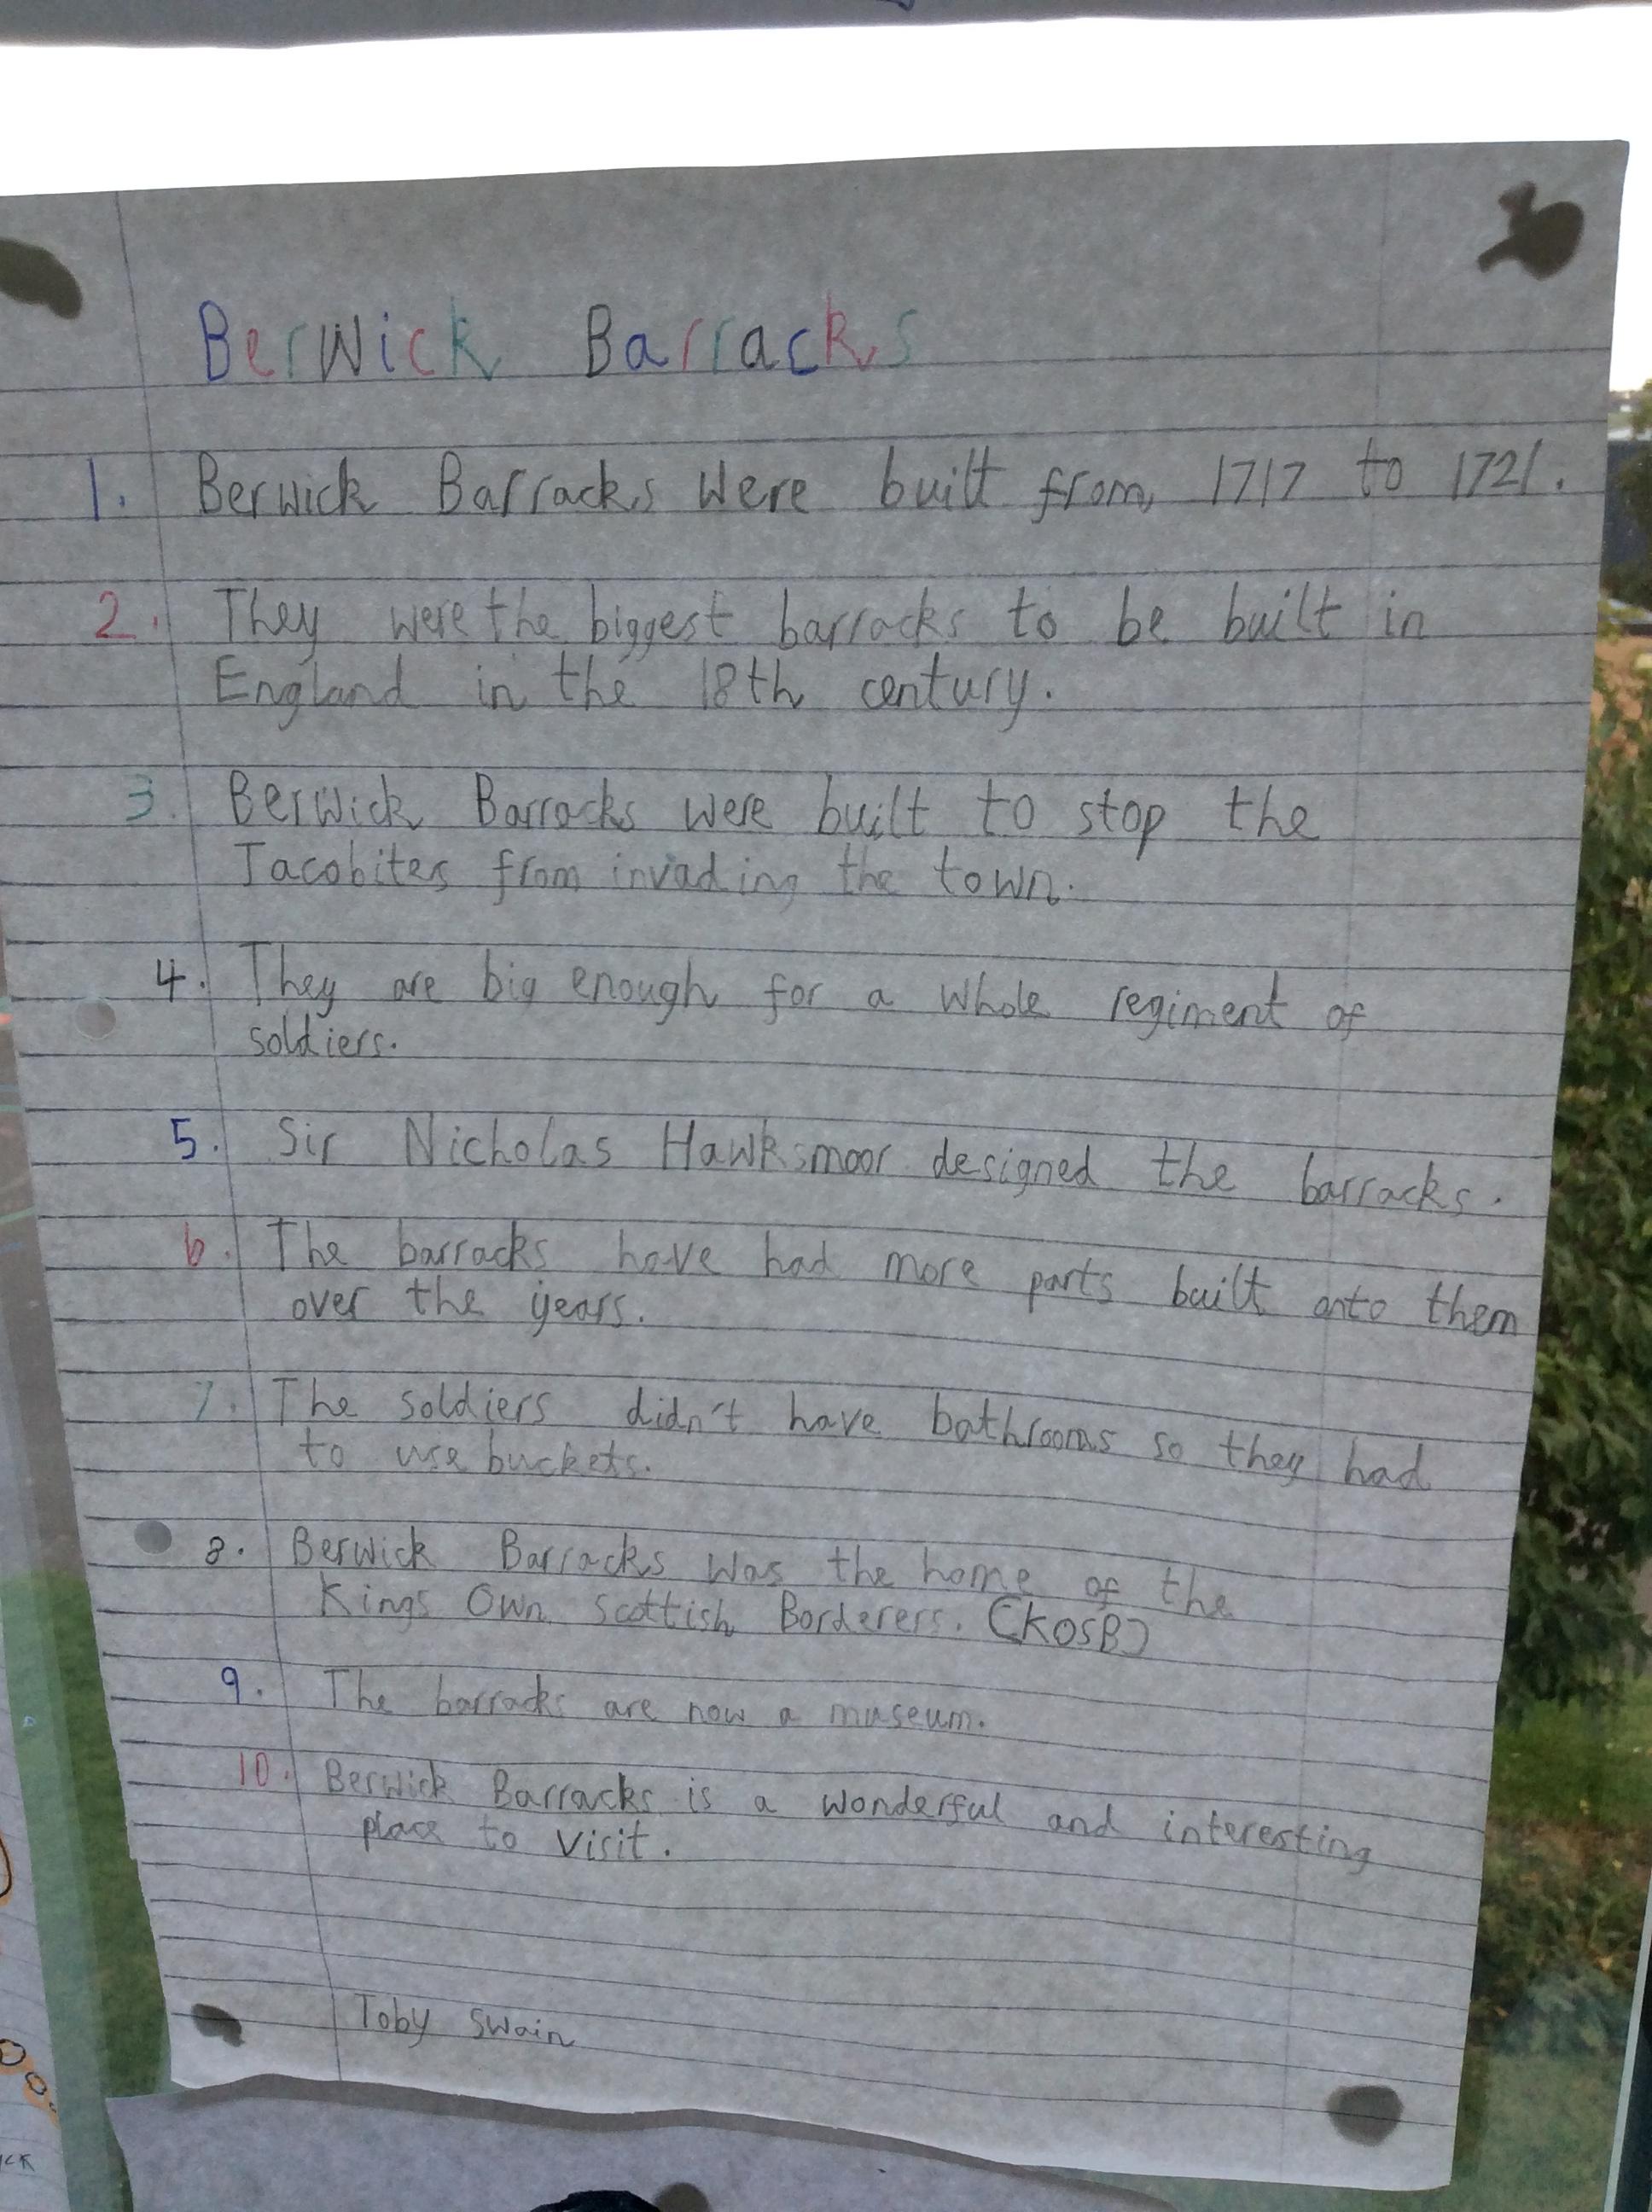 Berwick Barracks
1. Berwick Barracks were built from 1717 to 1721.
2. They were the biggest barracks to be built in
England in the 18th century.
3. Berwick Barracks were built to stop the
Jacobites from invading the town.
4. They are big enough for a whole regiment of
soldiers.
5. Sir Nicholas Hawksmoor designed the barracks.
6. The barracks have had more parts built onto them
over the years.
7. The soldiers didn't have bathrooms so they had
to use buckets.
8. Berwick Barracks was the home of the
Kings Own Scottish Borderers. (KOSB)
9. The barracks are now a museum.
10. Berwick Barracks is a wonderful and interesting
place to visit.
Toby Swain